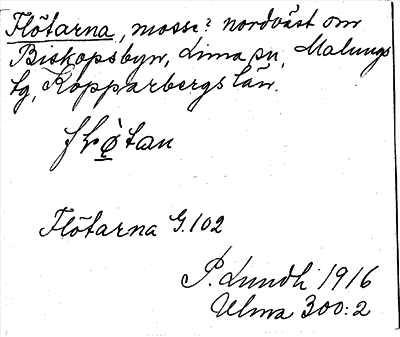 Flötarna, mosse? nordväst om
Biskopsbyn, Lima sn, Malungs
tg, Kopparbergs län.
Flötarna G. 102
P. Lundh 1916
Ulma 300:2